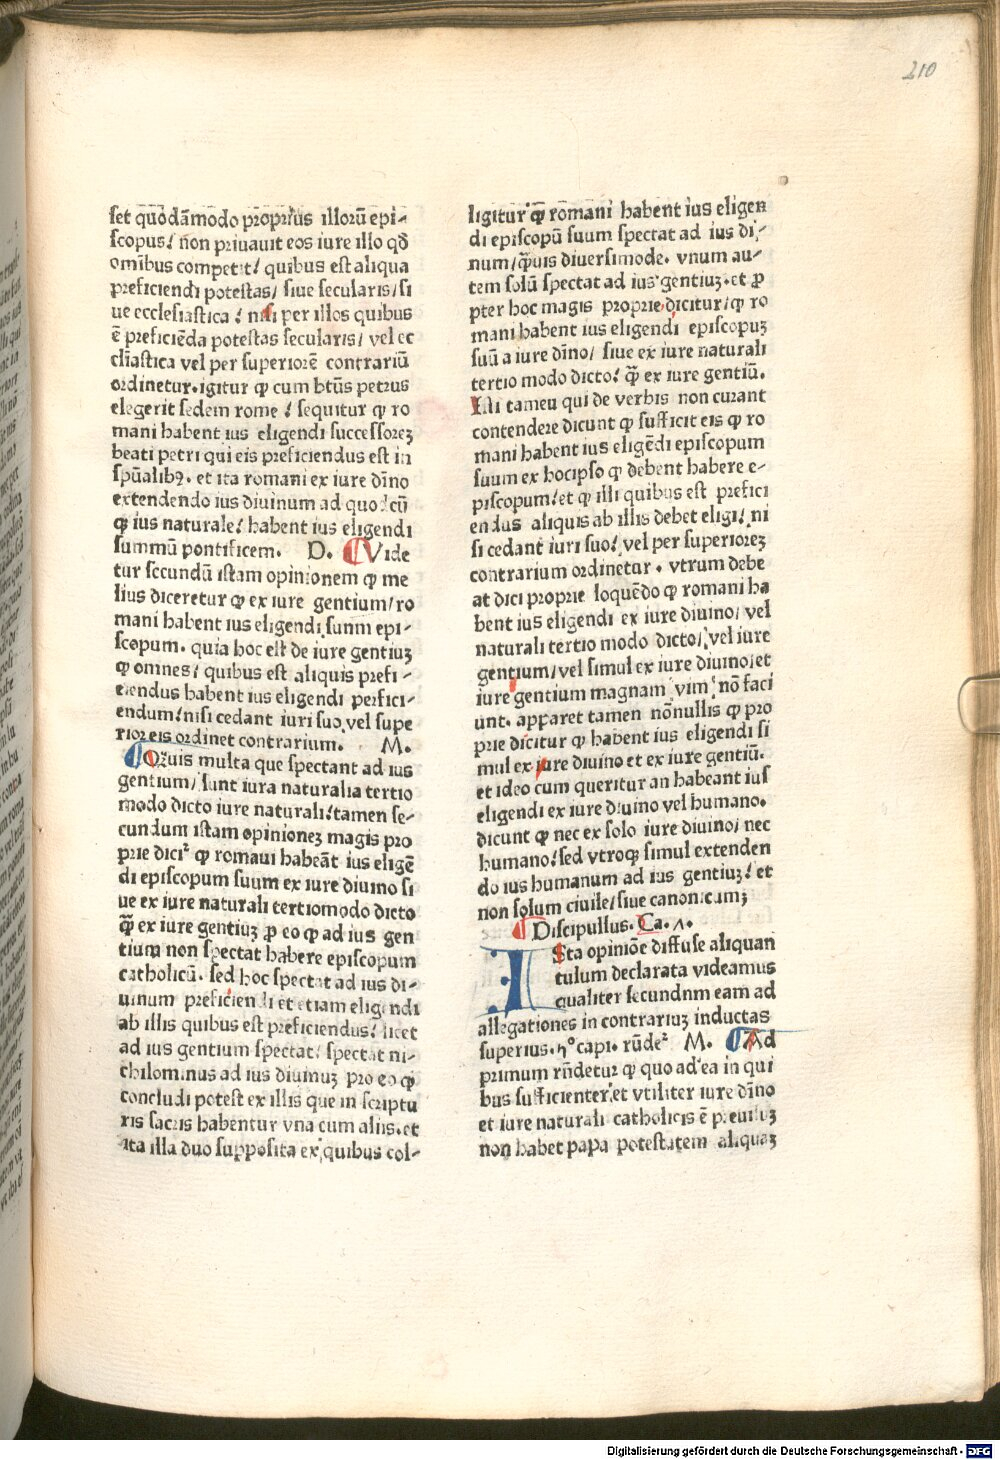 210
set quodāmodo proprius illorū epi-
scopus/ non priuauit eos iure illo qđ
omībus competit/ quibus est aliqua
preficiendi potestas/ siue secularis/ si
ue ecclesiastica / nisi per illos quibus
ē preficiēda potestas secularis/ vel ec
clīastica vel per superiorē contrariū
ordinetur. igitur ꝙ cum btūs petrus
elegerit sedem rome / sequitur ꝙ ro
mani habent ius eligendi successoreꝫ
beati petri qui eis preficiendus est in
spūalibꝰ. et ita romani ex iure dīno
extendendo ius diuinum ad quodcū
ꝙ ius naturale/ habent ius eligendi
summū pontificem. D. ¶ Vide
tur secundū istam opinionem ꝙ me
lius diceretur ꝙ ex iure gentium/ ro
mani habent ius eligendi sunm epi-
scopum. quia hoc est de iure gentiuꝫ
ꝙ omnes/ quibus est aliquis prefi-
ciendus habent ius eligendi perfici-
endum/ nisi cedant iuri suo vel supe
rior eis ordinet contrarium. M.
¶ Qꝫuis multa que spectant ad ius
gentium/ sunt iura naturalia tertio
modo dicto iure naturali/ tamen se-
cundum istam opinioneꝫ magis pro
prie dicit᷑ ꝙ romaui habeāt ius eligē
di episcopum suum ex iure diuino si
ue ex iure naturali tertiomodo dicto
ꝙ̄ ex iure gentiuꝫ ꝓ eo ꝙ ad ius gen
tium non spectat habere episcopum
catholicū. sed hoc spectat ad ius di-
uinum preficiendi et etiam eligendi
ab illis quibus est preficiendus/ licet
ad ius gentium spectat/ spectat ni-
chilominus ad ius diuinuꝫ pro eo ꝙ
concludi potest ex illis que in scriptu
ris sacris habentur vna cum aliis. et
ita illa duo supposita ex quibus col-
ligitur ꝙ romani habent ius eligen
di episcopū suum spectat ad ius di-
num/ ꝙ̄uis diuersimode. vnum au-
tem solū spectat ad ius gentiuꝫ. et ꝓ
pter hoc magis proprie dicitur/ ꝙ ro
mani habent ius eligendi episcopuꝫ
suū a iure dīno/ siue ex iure naturali
tertio modo dicto/ ꝙ̄ ex iure gentiū.
Isti tameu qui de verbis non curant
contendere dicunt ꝙ sufficit eis ꝙ ro
mani habent ius eligēdi episcopum
suum ex hocipso ꝙ debent habere e-
piscopum/ et ꝙ illi quibus est prefici
endus aliquis ab illis debet eligi/ ni
si cedant iuri suo/ vel per superioreꝫ
contrarium ordinetur. vtrum debe
at dici proprie loquēdo ꝙ romani ha
bent ius eligendi ex iure diuino/ vel
naturali tertio modo dicto/ vel iure
gentium/ vel simul ex iure diuino/ et
iure gentium magnam vim nō faci
unt. apparet tamen nōnullis ꝙ pro
prie dicitur ꝙ habent ius eligendi si
mul ex iure diuino et ex iure gentiū.
et ideo cum queritur an habeant ius
eligendi ex iure diuino vel humano.
dicunt ꝙ nec ex solo iure diuino/ nec
humano/ sed vtroqꝫ simul extenden
do ius humanum ad ius gentiuꝫ/ et
non solum ciuile/ siue canonicumꝫ
¶ Discipullus. Ca. ʌ.
Ista opiniōe diffuse aliquan
tulum declarata videamus
qualiter secundnm eam ad
allegationes in contrariuꝫ inductas
superius. ʌ° capi. rūdet᷑ M. ¶ Ad
primum rūdetur ꝙ quo ad ea in qui
bus sufficienter et vtiliter iure dīno
et iure naturali catholicis ē preuisuꝫ
non habet papa potestatem aliquaꝫ
Digitalisierung gefördert durch die Deutsche Forschungsgemeinschaft - DFG